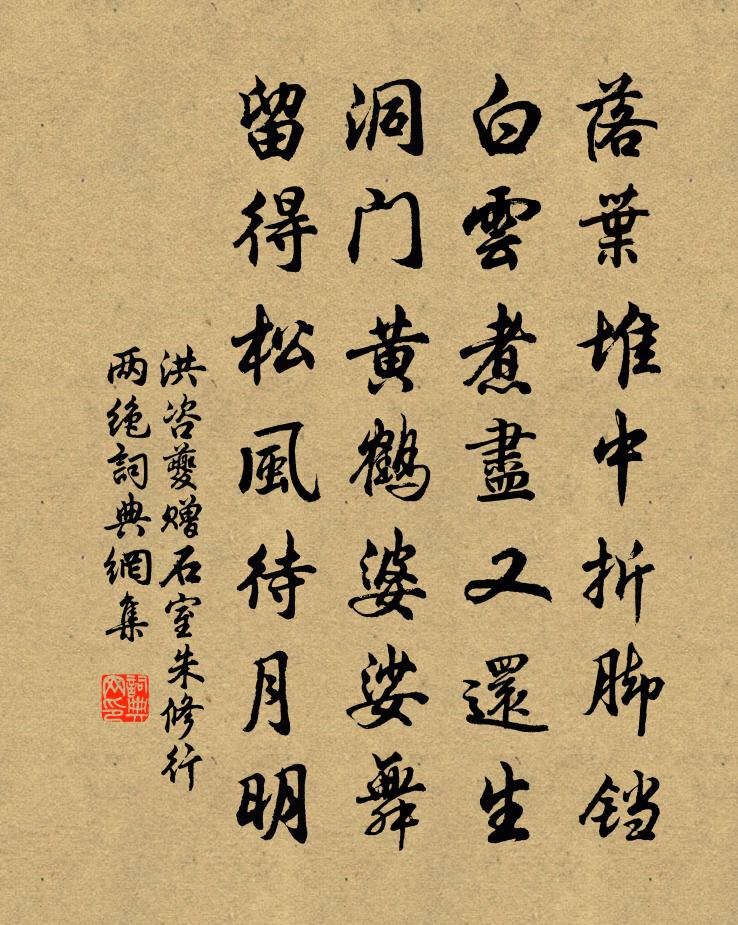 落葉堆中折脚铛
白雲煮盡又還生
洞门黄鶴婆娑舞
留得松風待月明
洪咨夔赠石室朱修行
两绝詞典網集
詞典